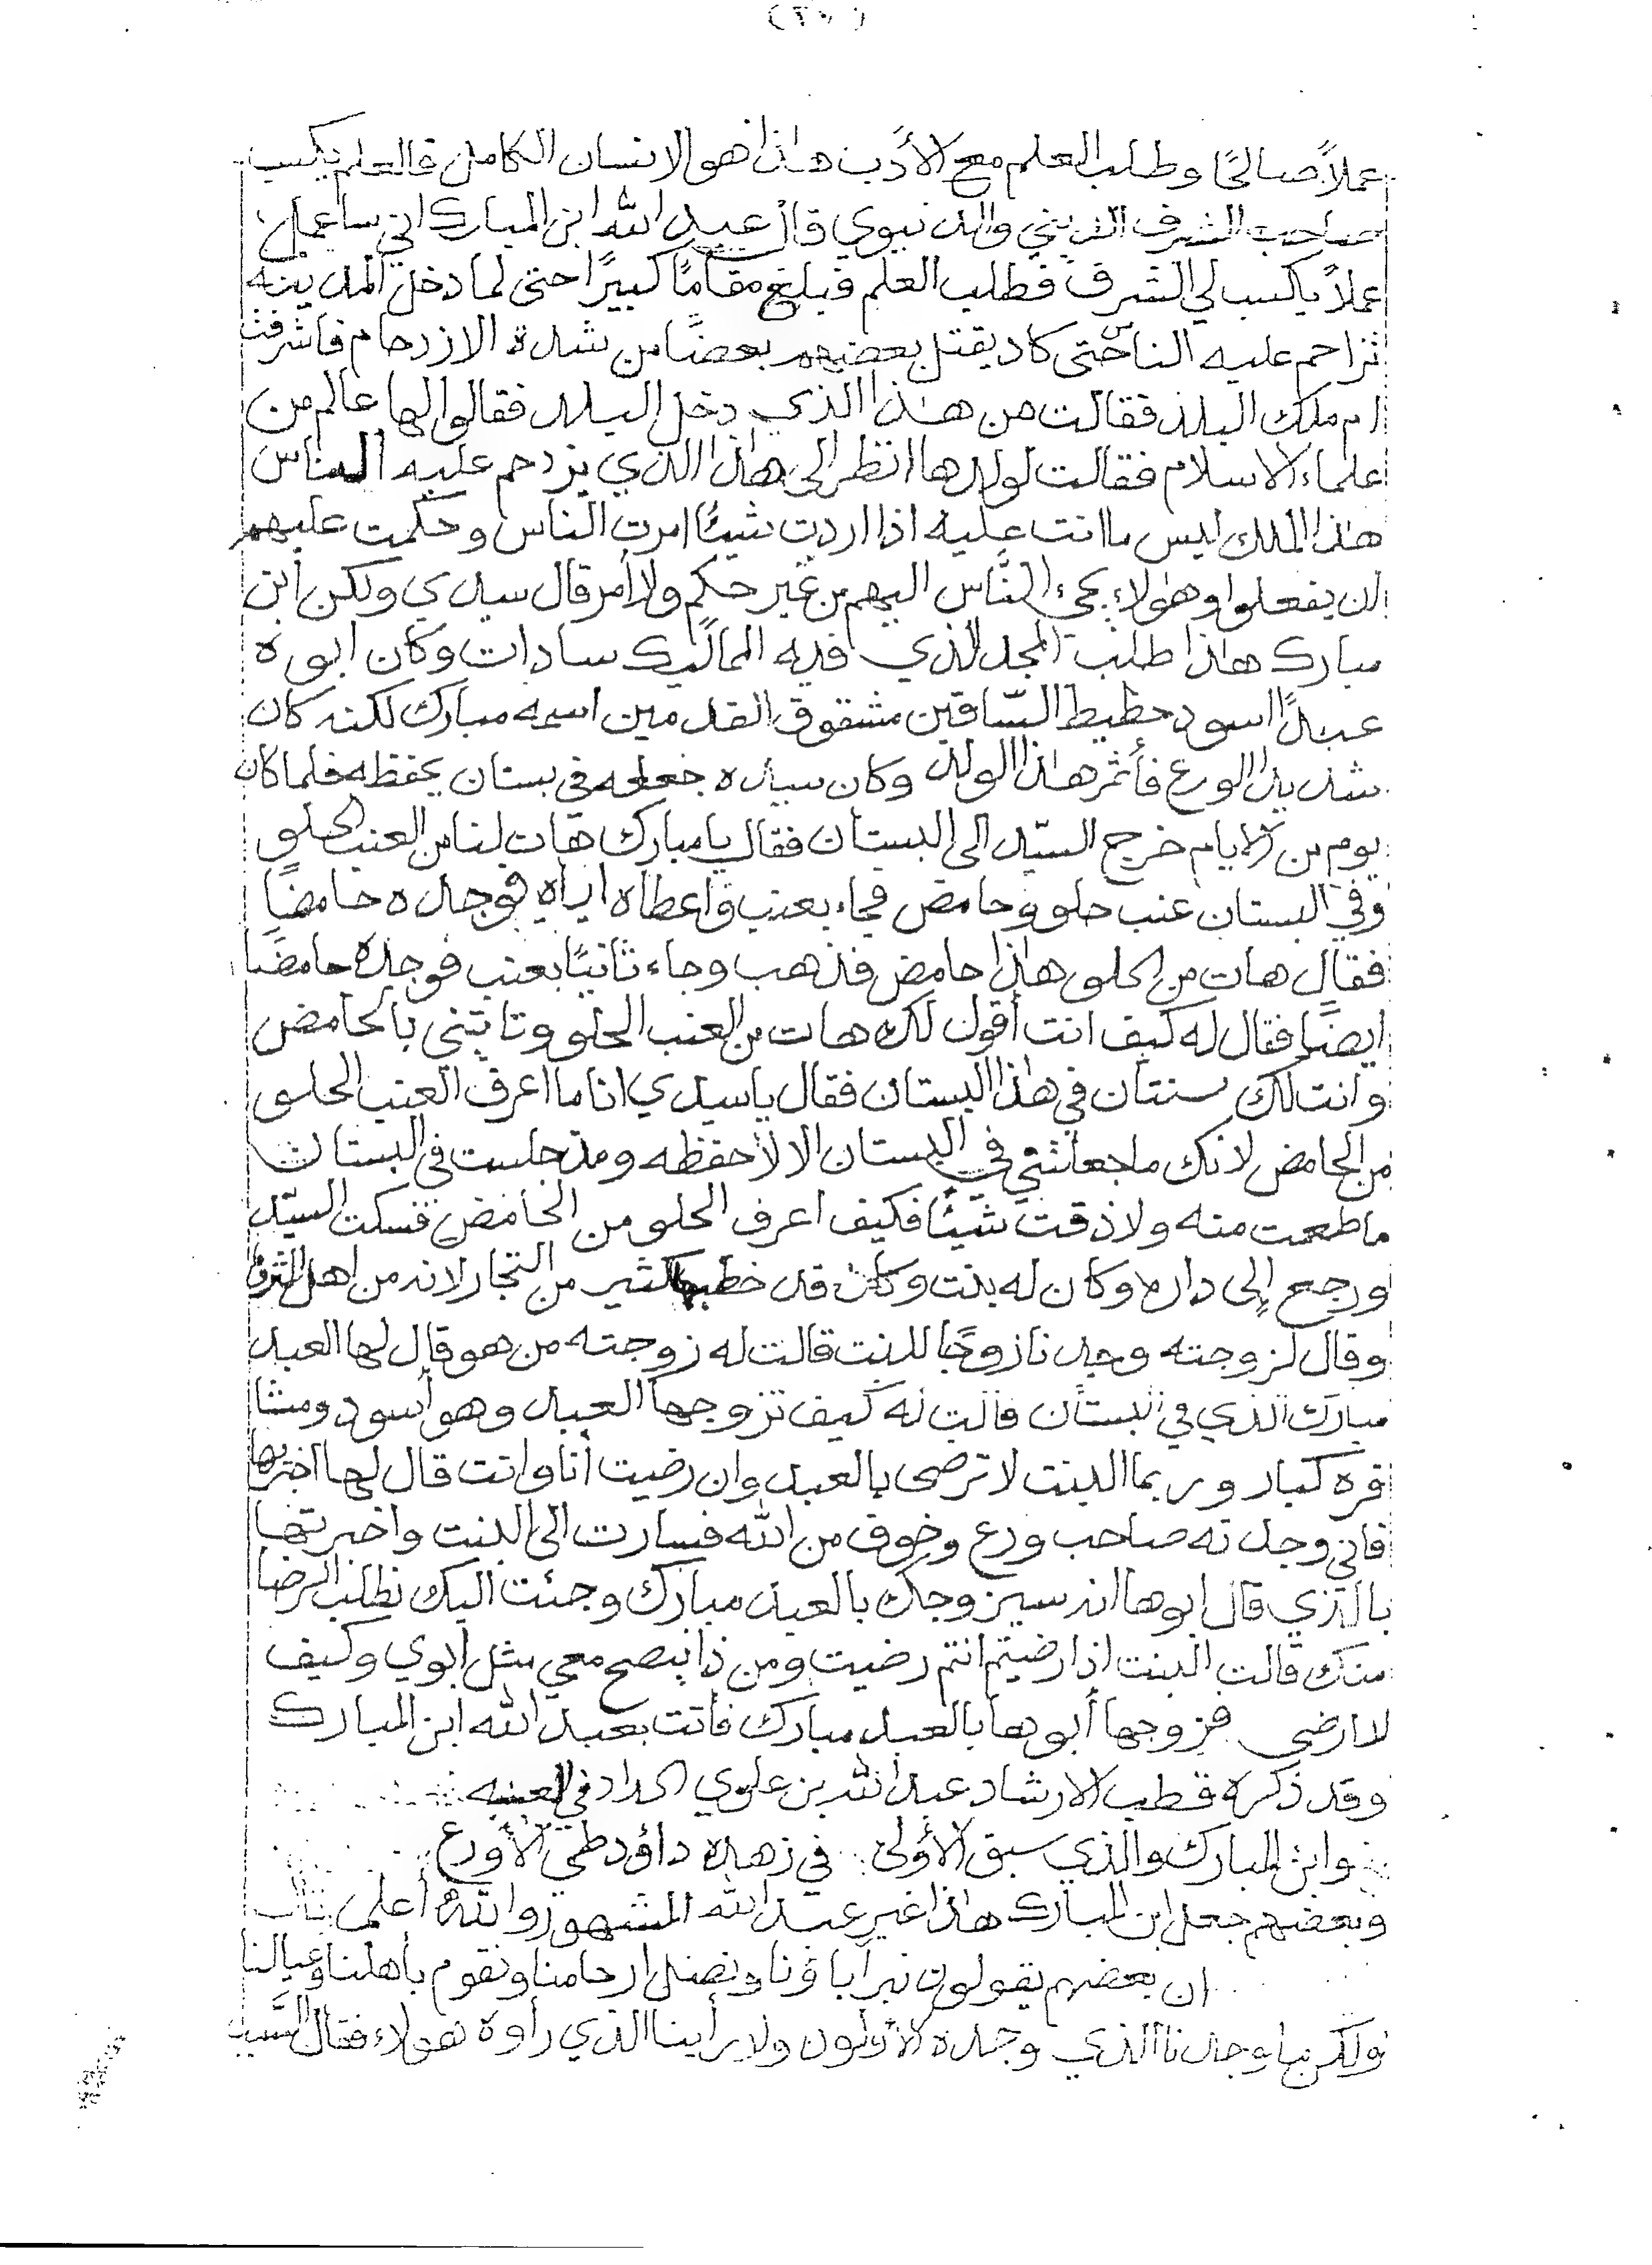 عملاً صالحًا وطلب العلم مع الأدب هاذا هو الانسان الكامل فالعلم يكسب
صاحب الشرف الديني والدنيوي قال عبد الله ابن المبارك اني ساعمل
عملاً ياكسب لي الشرف فطلب العلم فبلغ مقامًا كبيرًا حتى لما دخل المدينه
تزاحم عليه الناس حتى كاد يقتل بعضهم بعضًا من شدة الازدحام فاشرفت
ام ملك البلد فقالت من هاذا الذي دخل البلد فقالوا لها عالم من
علماء الاسلام فقالت لولدها انظر الى هاذا الذي يزدحم عليه الناس
هاذا الملك ليس ما انت عليه اذا اردت شيئًا امرت الناس وحكمت عليهم
ان يفعلوا وهؤلاء يجيء الناس اليهم من غير حكم ولا أمر قال سيدي ولكن ابن
مبارك هاذا طلب المجد الذي فيه المماليك سادات وكان ابوه
عبدًا اسود حظيط السّاقين مشقوق القدمين اسمه مبارك لكنه كان
شديد الورع فأثمر هاذا الولد وكان سيده جعله في بستان يحفظه فلما كان
يوم من الايام خرج السيّد الى البستان فقال يا مبارك هات لنا من العنب الحلو
وفي البستان عنب حلو وحامض فجاء بعنب واعطاه اياه فوجده حامضًا
فقال هات من الحلو هاذا حامض فذهب وجاء ثانيًا بعنب فوجده حامضًا
ايضًا فقال له كيف انت أقول لك هات من العنب الحلو وتاتيني بالحامض
وانت لك سنتان في هاذا البستان فقال يا سيدي انا ما اعرف العنب الحلو
من الحامض لانك ما جعلتني في البستان الا لأحفظه ومذ جلست في البستان
ما طعمت منه ولا ذقت شيئًا فكيف اعرف الحلو من الحامض فسكت السيّد
ورجع إلى داره وكان له بنت وكان قد خطبها كثير من التجار لانه من اهل الثروة
وقال لزوجته وجدنا زوجًا للبنت قالت له زوجته من هو قال لها العبد
مبارك الذي في البستان قالت له كيف تزوجها العبد وهو أسود ومشا
فره كبار وربما البنت لا ترضى بالعبد وان رضيت أنا وانت قال لها اخبريها
فاني وجدته صاحب ورع وخوف من الله فسارت الى البنت واخبرتها
بالذي قال ابوها انه سيزوجك بالعبد مبارك وجئت اليك نطلب الرضا
منك قالت البنت اذا رضيتم انتم رضيت ومن ذا ينصح معي مثل ابوي وكيف
لا ارضى فزوجها أبوها بالعبد مبارك فأتت بعبد الله ابن المبارك
وقد ذكره قطب الارشاد عبد الله بن علوي الحداد في العينيه
وابن المبارك والذي سبق الأولى في زهده داؤد طي الأورع
وبعضهم جعل ابن المبارك هاذا غير عبد الله المشهور والله أعلم
ان بعضهم يقولون نبر آباؤنا ونصل ارحامنا ونقوم بأهلنا وعيالنا
ولكن ما وجدنا الذي وجده الأولون ولا رأينا الذي رأوه هؤلاء فقال السيد